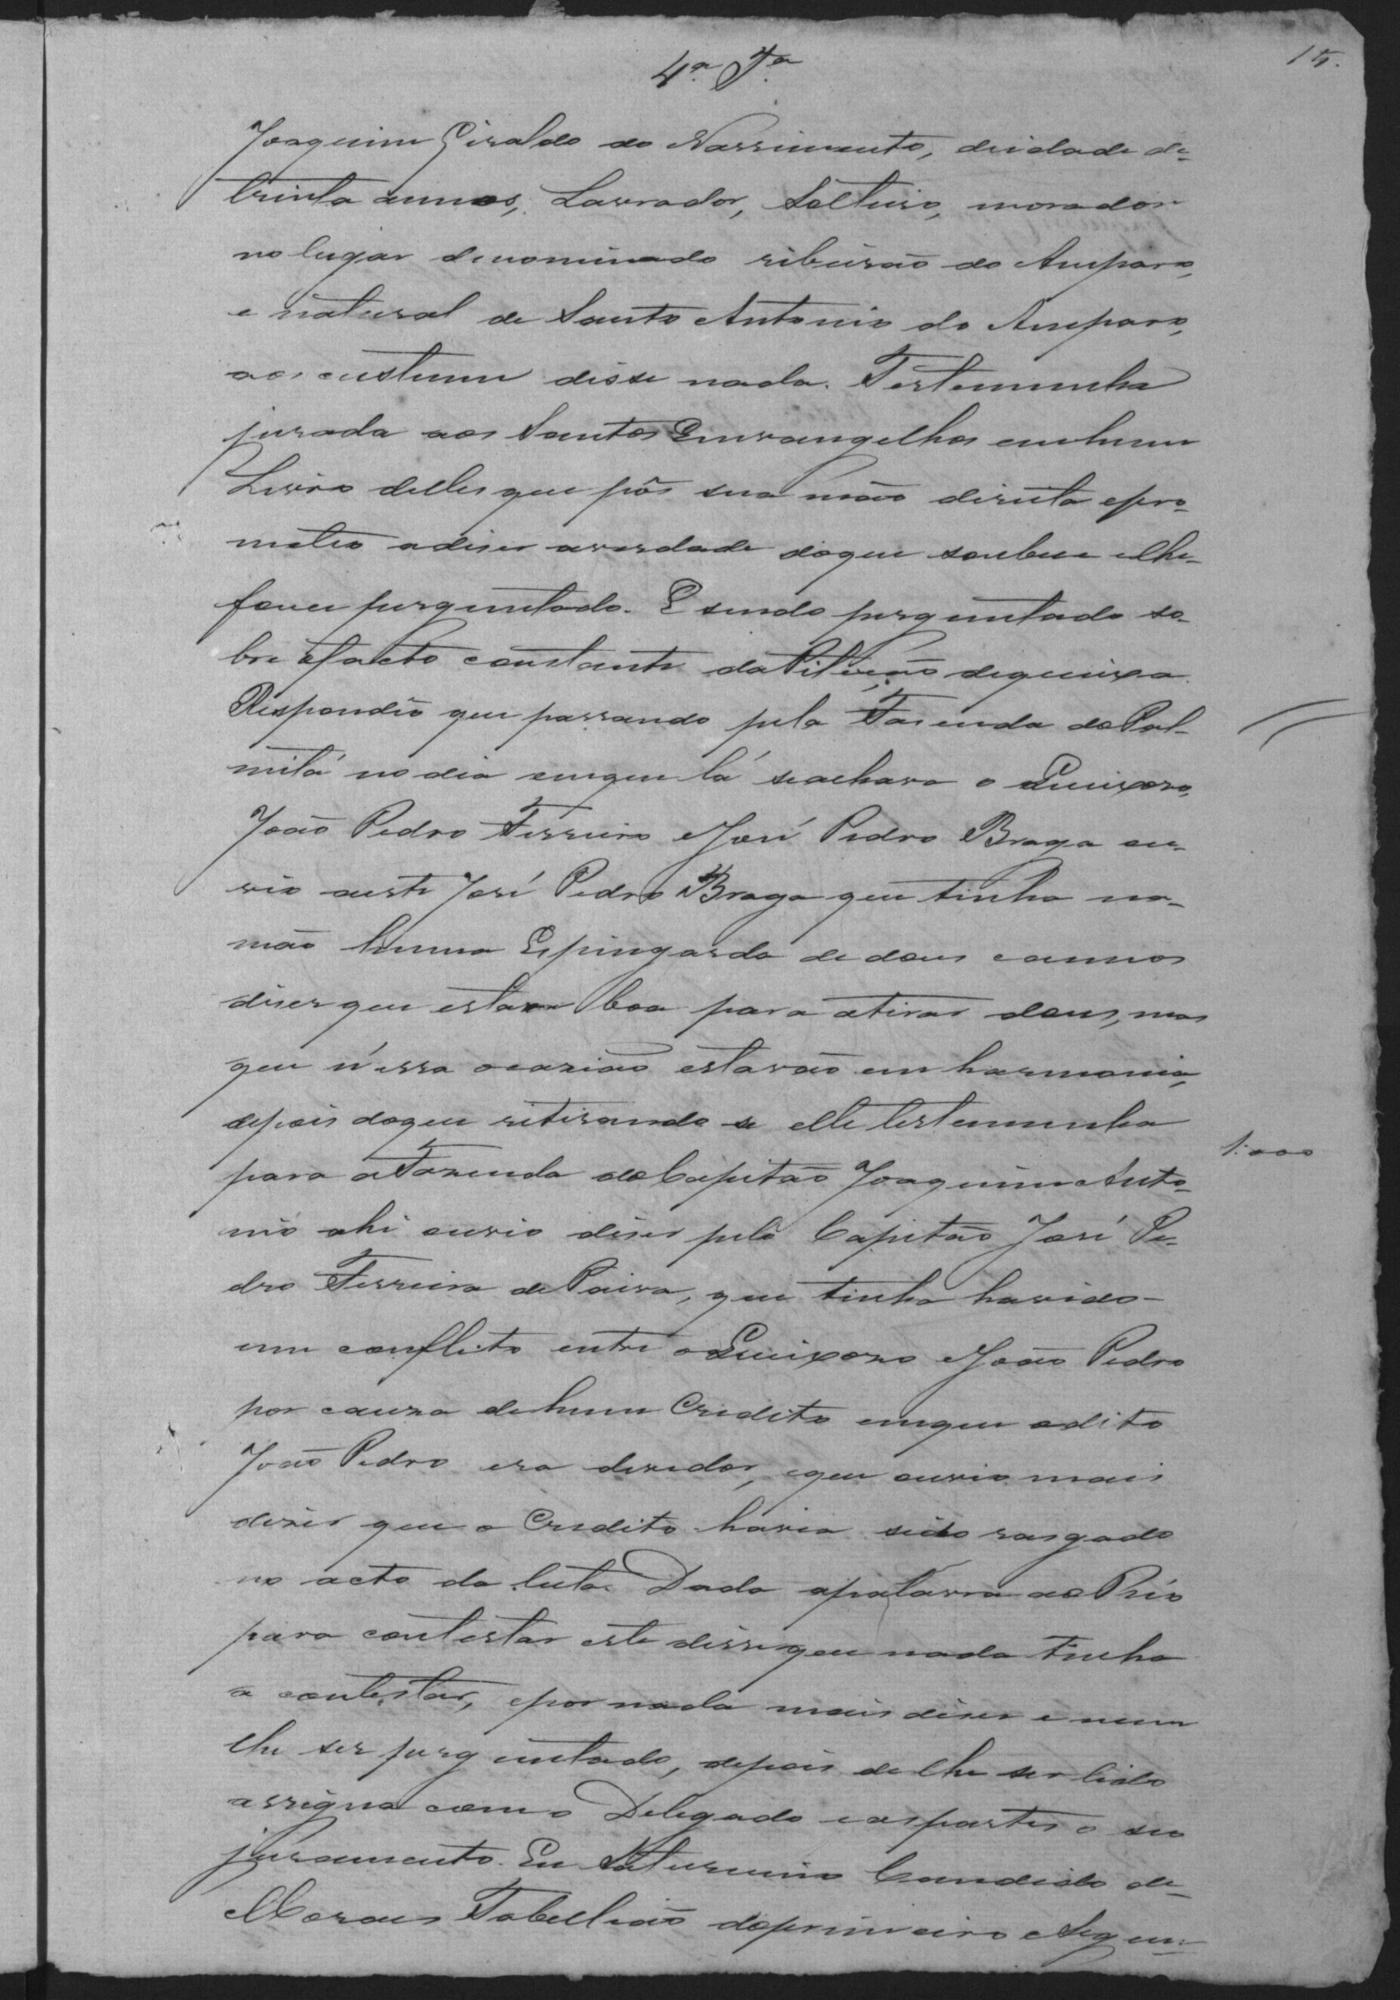 15.
4.ª T.ª
Joaquim Giraldo do Nascimento, deidade de
trinta annos, Lavrador, Solteiro, morador
no lugar denominado ribeirão do Amparo,
e natural de Santo Antonio do Amparo,
aos custume disse nada. Testemunha
jurada aos Santos Envangelhos emhum
Livro delles que pôs sua mão direita epro-
meteo adiser averdade doque soubese elhe
foce perguntado. E sendo perguntado so-
bre ofacto constante daPitição dequeixa.
Respondeo que passando pela Fasenda doPal-
mital no dia emque lá seachava o Queixozo,
João Pedro Ferreira eJosé Pedro Braga ou-
vio aeste José Pedro Braga que tinha na-
mão huma Espingarda de dous cannos
diser que estava boa para atirar dous, mas
que n'essa ocazião estavão em harmonia,
depois doque retirando se elle testemunha
para aFazenda doCapitão Joaquim Anto-
nio ahi ouvio diser pelo Capitão José Pe-
dro Ferreira dePaiva, que tinha havido
um conflito entre oQueixozo eJoão Pedro
por cauza dehum Credito emque odito
João Pedro era devedor, eque ouvio mais
dizer que o Credito havia sido rasgado
no acto da luta. Dada apalavra ao Réo
para contestar este disseque nada tinha
a contestar, epor nada mais diser e nem
lhe ser perguntado, depois de lhe ser lido
assigna com o Delegado easpartes o seo
juramento. Eu Saturnino Candido de
Moraes Tabellião doprimeiro eSegun-
1:000